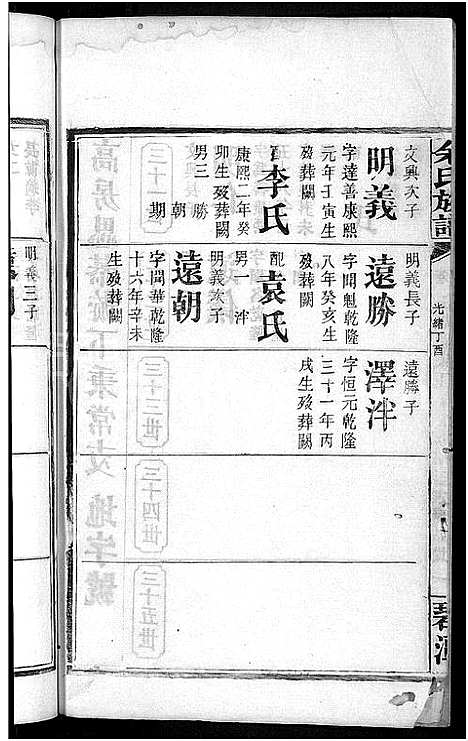 余氏族譜
光緒丁酉
文興次子
明義
字達善康熙
元年壬寅生
歿葬闕
配李氏
康熙二年癸
卯生歿葬闕
男三 勝
朝
期
明義長子
遠勝
字聞魁乾隆
八年癸亥生
歿葬闕
配袁氏
男一 泮
明義次子
遠朝
字聞華乾隆
十六年辛未
生歿葬闕
遠勝子
澤泮
字恒元乾隆
三十一年丙
戌生歿葬闕
明義三子